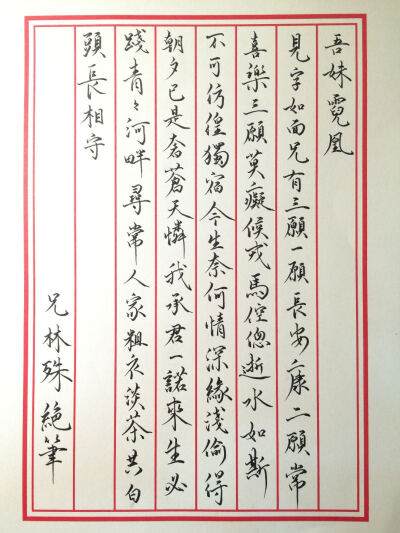 吾妹霓凰
見字如面兄有三願一願長安二康二願常
喜樂三願莫癡候戎馬倥傯逝水如斯
不可彷徨獨宿今生奈何情深緣淺偷得
朝夕已是奢蒼天憐我承君一諾來生必
踐青々河畔尋常人家粗衣淡茶共白
頭長相守
兄林殊絕筆